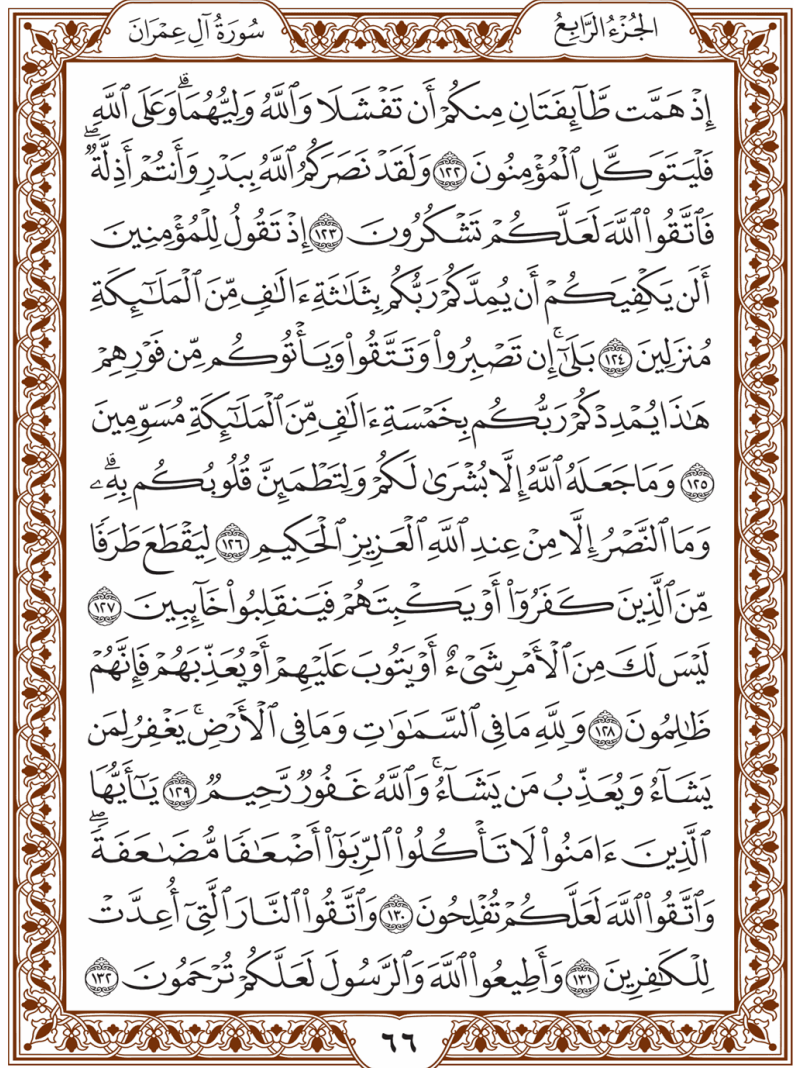 الجُزْءُ الرَّابِعُ
سُورَةُ آلِ عِمْرَانَ
إِذۡ هَمَّت طَّآئِفَتَانِ مِنكُمۡ أَن تَفۡشَلَا وَٱللَّهُ وَلِيُّهُمَاۗ وَعَلَى ٱللَّهِ
فَلۡيَتَوَكَّلِ ٱلۡمُؤۡمِنُونَ ١٢٢ وَلَقَدۡ نَصَرَكُمُ ٱللَّهُ بِبَدۡرٖ وَأَنتُمۡ أَذِلَّةٞۖ
فَٱتَّقُواْ ٱللَّهَ لَعَلَّكُمۡ تَشۡكُرُونَ ١٢٣ إِذۡ تَقُولُ لِلۡمُؤۡمِنِينَ
أَلَن يَكۡفِيَكُمۡ أَن يُمِدَّكُمۡ رَبُّكُم بِثَلَٰثَةِ ءَالَٰفٖ مِّنَ ٱلۡمَلَٰٓئِكَةِ
مُنزَلِينَ ١٢٤ بَلَىٰٓۚ إِن تَصۡبِرُواْ وَتَتَّقُواْ وَيَأۡتُوكُم مِّن فَوۡرِهِمۡ
هَٰذَا يُمۡدِدۡكُمۡ رَبُّكُم بِخَمۡسَةِ ءَالَٰفٖ مِّنَ ٱلۡمَلَٰٓئِكَةِ مُسَوِّمِينَ
١٢٥ وَمَا جَعَلَهُ ٱللَّهُ إِلَّا بُشۡرَىٰ لَكُمۡ وَلِتَطۡمَئِنَّ قُلُوبُكُم بِهِۦۗ
وَمَا ٱلنَّصۡرُ إِلَّا مِنۡ عِندِ ٱللَّهِ ٱلۡعَزِيزِ ٱلۡحَكِيمِ ١٢٦ لِيَقۡطَعَ طَرَفٗا
مِّنَ ٱلَّذِينَ كَفَرُوٓاْ أَوۡ يَكۡبِتَهُمۡ فَيَنقَلِبُواْ خَآئِبِينَ ١٢٧
لَيۡسَ لَكَ مِنَ ٱلۡأَمۡرِ شَيۡءٌ أَوۡ يَتُوبَ عَلَيۡهِمۡ أَوۡ يُعَذِّبَهُمۡ فَإِنَّهُمۡ
ظَٰلِمُونَ ١٢٨ وَلِلَّهِ مَا فِي ٱلسَّمَٰوَٰتِ وَمَا فِي ٱلۡأَرۡضِۚ يَغۡفِرُ لِمَن
يَشَآءُ وَيُعَذِّبُ مَن يَشَآءُۚ وَٱللَّهُ غَفُورٞ رَّحِيمٞ ١٢٩ يَٰٓأَيُّهَا
ٱلَّذِينَ ءَامَنُواْ لَا تَأۡكُلُواْ ٱلرِّبَوٰٓاْ أَضۡعَٰفٗا مُّضَٰعَفَةٗۖ
وَٱتَّقُواْ ٱللَّهَ لَعَلَّكُمۡ تُفۡلِحُونَ ١٣٠ وَٱتَّقُواْ ٱلنَّارَ ٱلَّتِيٓ أُعِدَّتۡ
لِلۡكَٰفِرِينَ ١٣١ وَأَطِيعُواْ ٱللَّهَ وَٱلرَّسُولَ لَعَلَّكُمۡ تُرۡحَمُونَ ١٣٢
٦٦